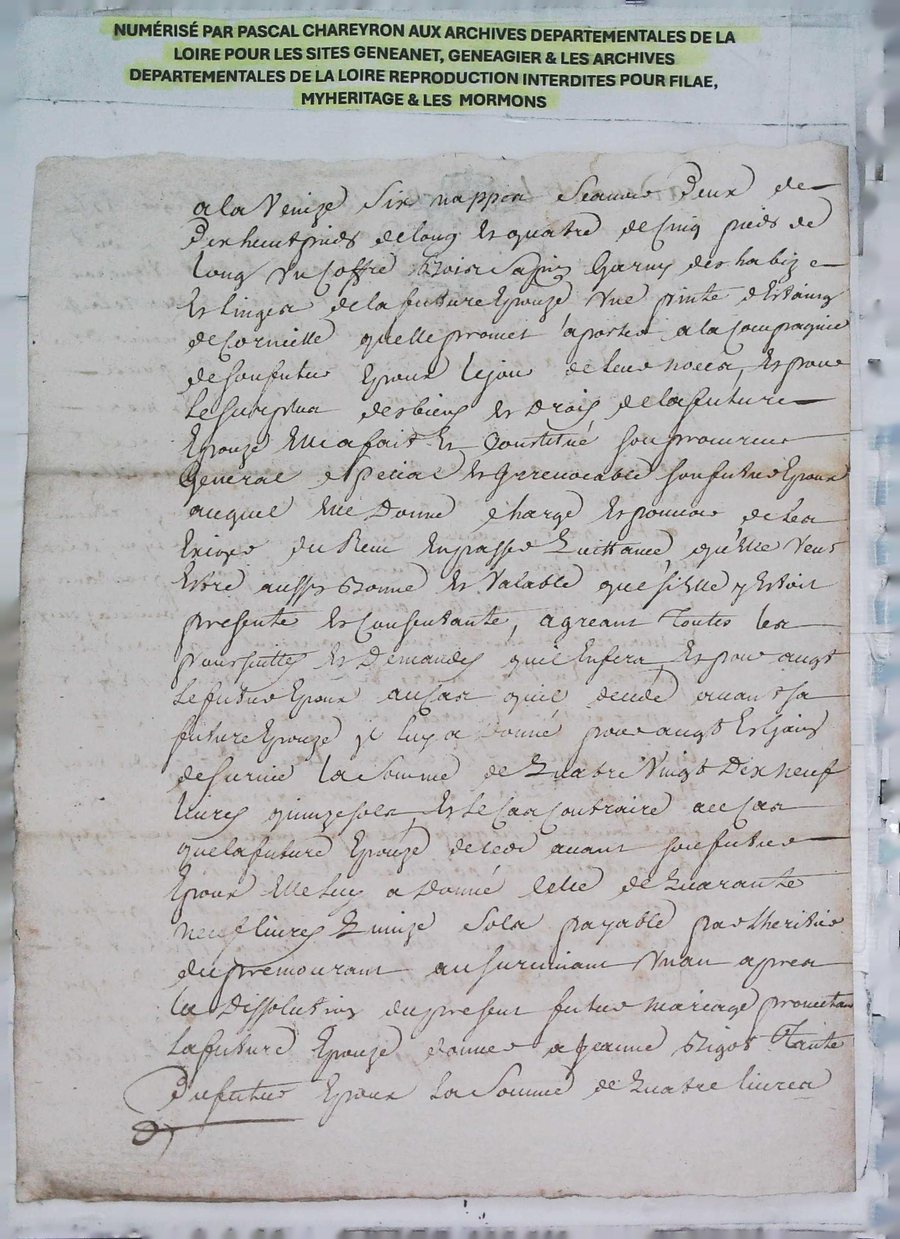 NUMÉRISÉ PAR PASCAL CHAREYRON AUX ARCHIVES DEPARTEMENTALES DE LA
LOIRE POUR LES SITES GENEANET, GENEAGIER & LES ARCHIVES
DEPARTEMENTALES DE LA LOIRE REPRODUCTION INTERDITES POUR FILAE,
MYHERITAGE & LES MORMONS
a la Venize Six nappes deux de
Dix huit pieds de long et quatre de Cinq pieds de
long un Coffre Bois Sapin Garny des habiz
Et linges de la future Epouze une pinte d'Estaing
de Cornette quelle promet aporter a la Compagnie
de son futur Epoux le jour de leur noces, Et pour
le surplus des biens et Droits de la future
Epouze Elle a fait Et Constitué son procureur
General especial et Irrevocable son futur Epoux
auquel Elle Donne charge Et pouvoir de les
Exiger du Reçu En passer Quittance, qu'Elle Veut
Estre aussy Bonne et Valable que si Elle y Estoit
presente et Consentante, agreant Toutes les
poursuittes et Demandes qu'il En fera, Et pour augt
Le futur Epoux au Cas qu'il decede avant sa
future Epouze il luy a Donné pour augt Et Gains
de survie la Somme de Quatre Vingt Dix neuf
livres quinze sols, Et le Cas Contraire au Cas
que la future Epouze decede avant son futur
Epoux Elle luy a Donné Celle de Quarante
neuf livres Quinze Sols payable par l'heritier
du premourant au survivant un an apres
la Dissolution du present futur mariage promettant
La future Epouze donner a Jeanne Bigot Tante
Du futur Epoux La Somme de Quatre livres